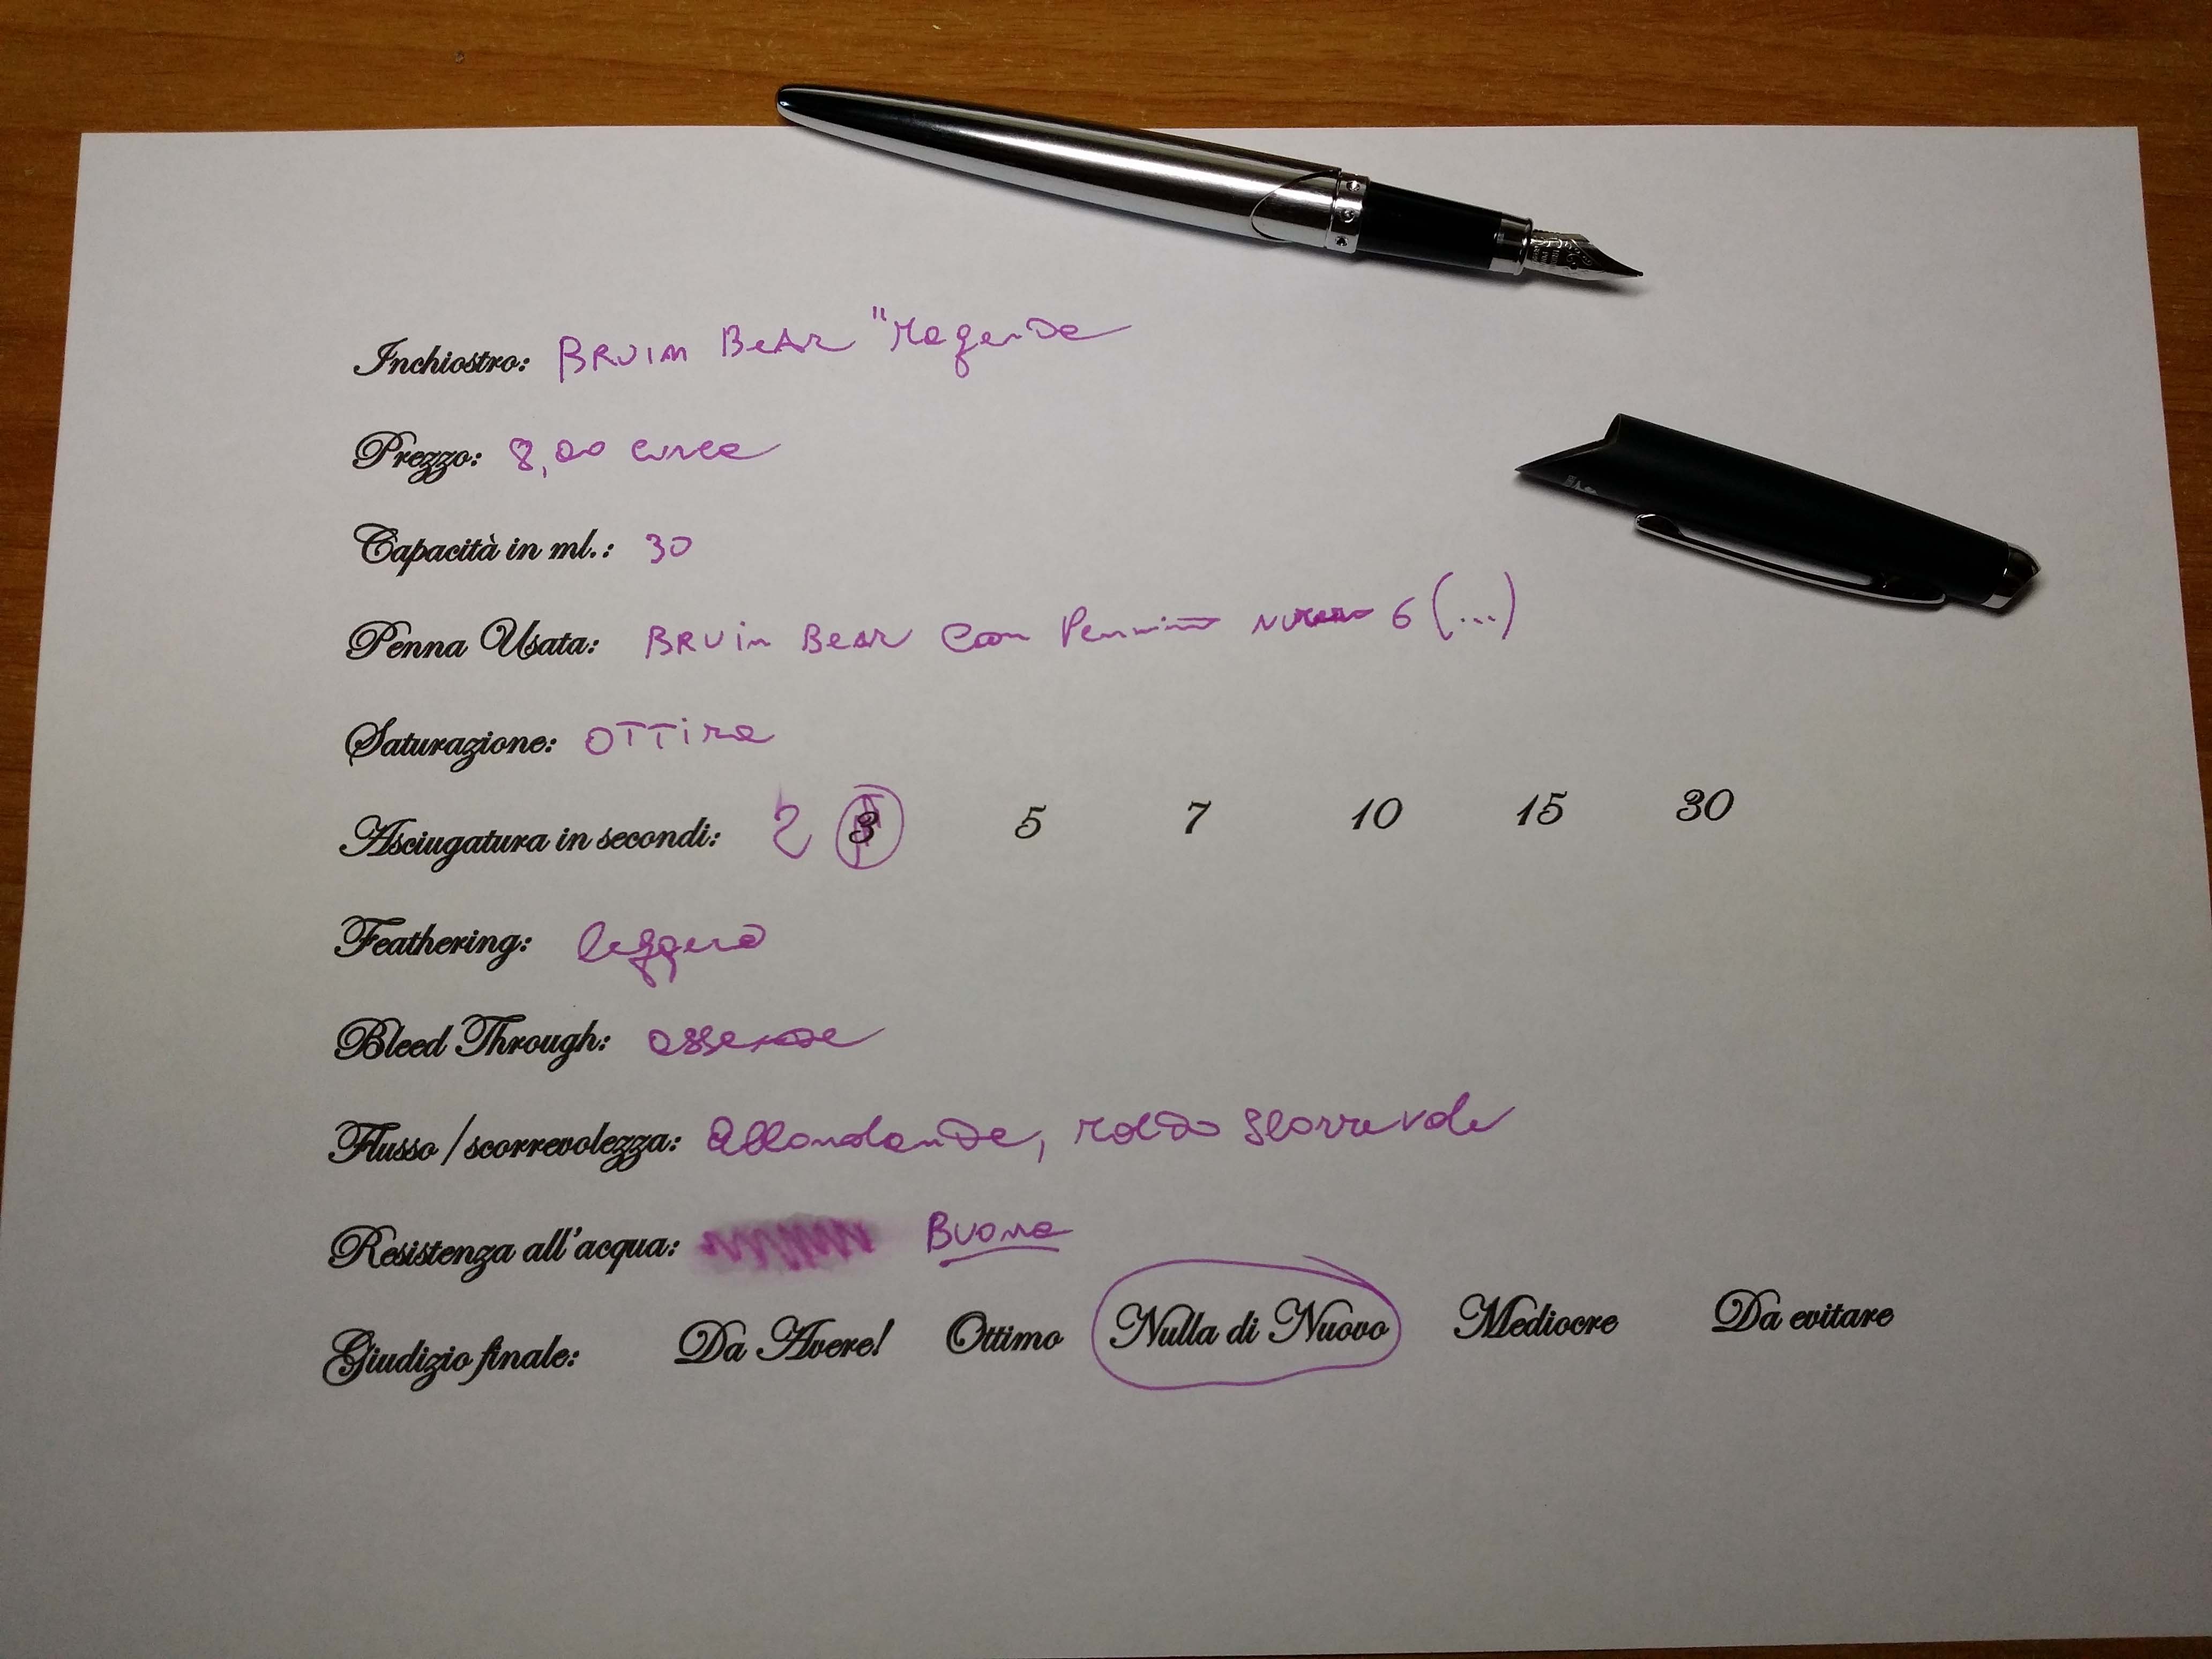 Inchiostro: BRUIN BEAR "Magenta
Prezzo: 8,00 circa
Capacità in ml.: 30
Penna Usata: BRUIN BEAR con Pennino numero 6 (...)
Saturazione: OTTima
Asciugatura in secondi: 2 3 5 7 10 15 30
Feathering: leggero
Bleed Through: assente
Flusso/scorrevolezza: abbondante, molto scorrevole
Resistenza all'acqua: Buona
Giudizio finale: Da Avere! Ottimo Nulla di Nuovo Mediocre Da evitare